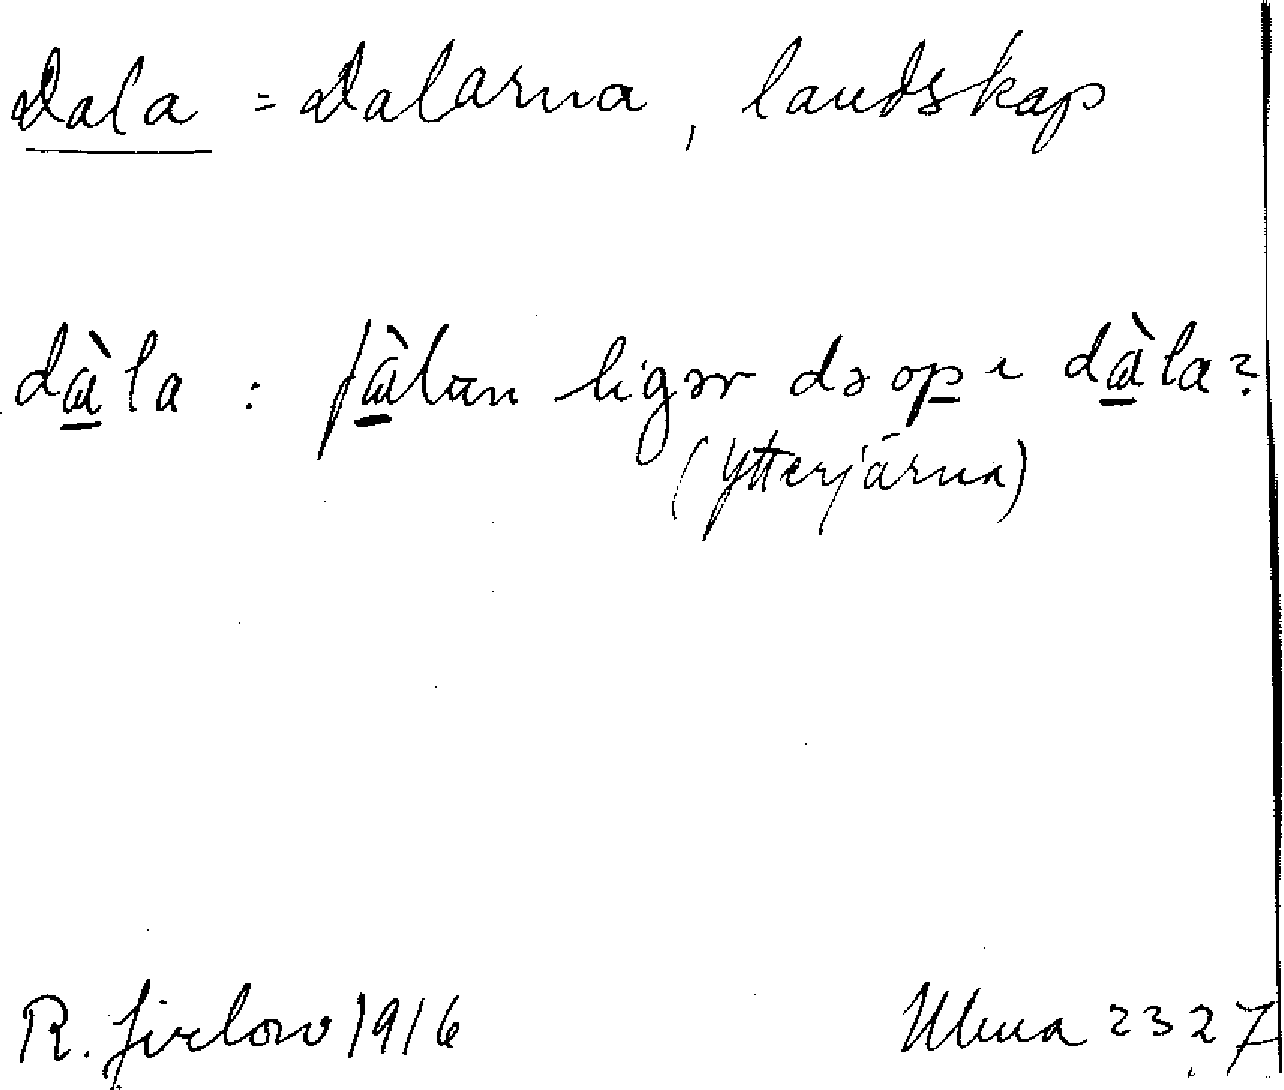 Dala = Dalarna, landskap
dàla : fàlun ligər də op ı dàla?
(Ytterjärna)
R. Jirlow 1916
Ulma 2327